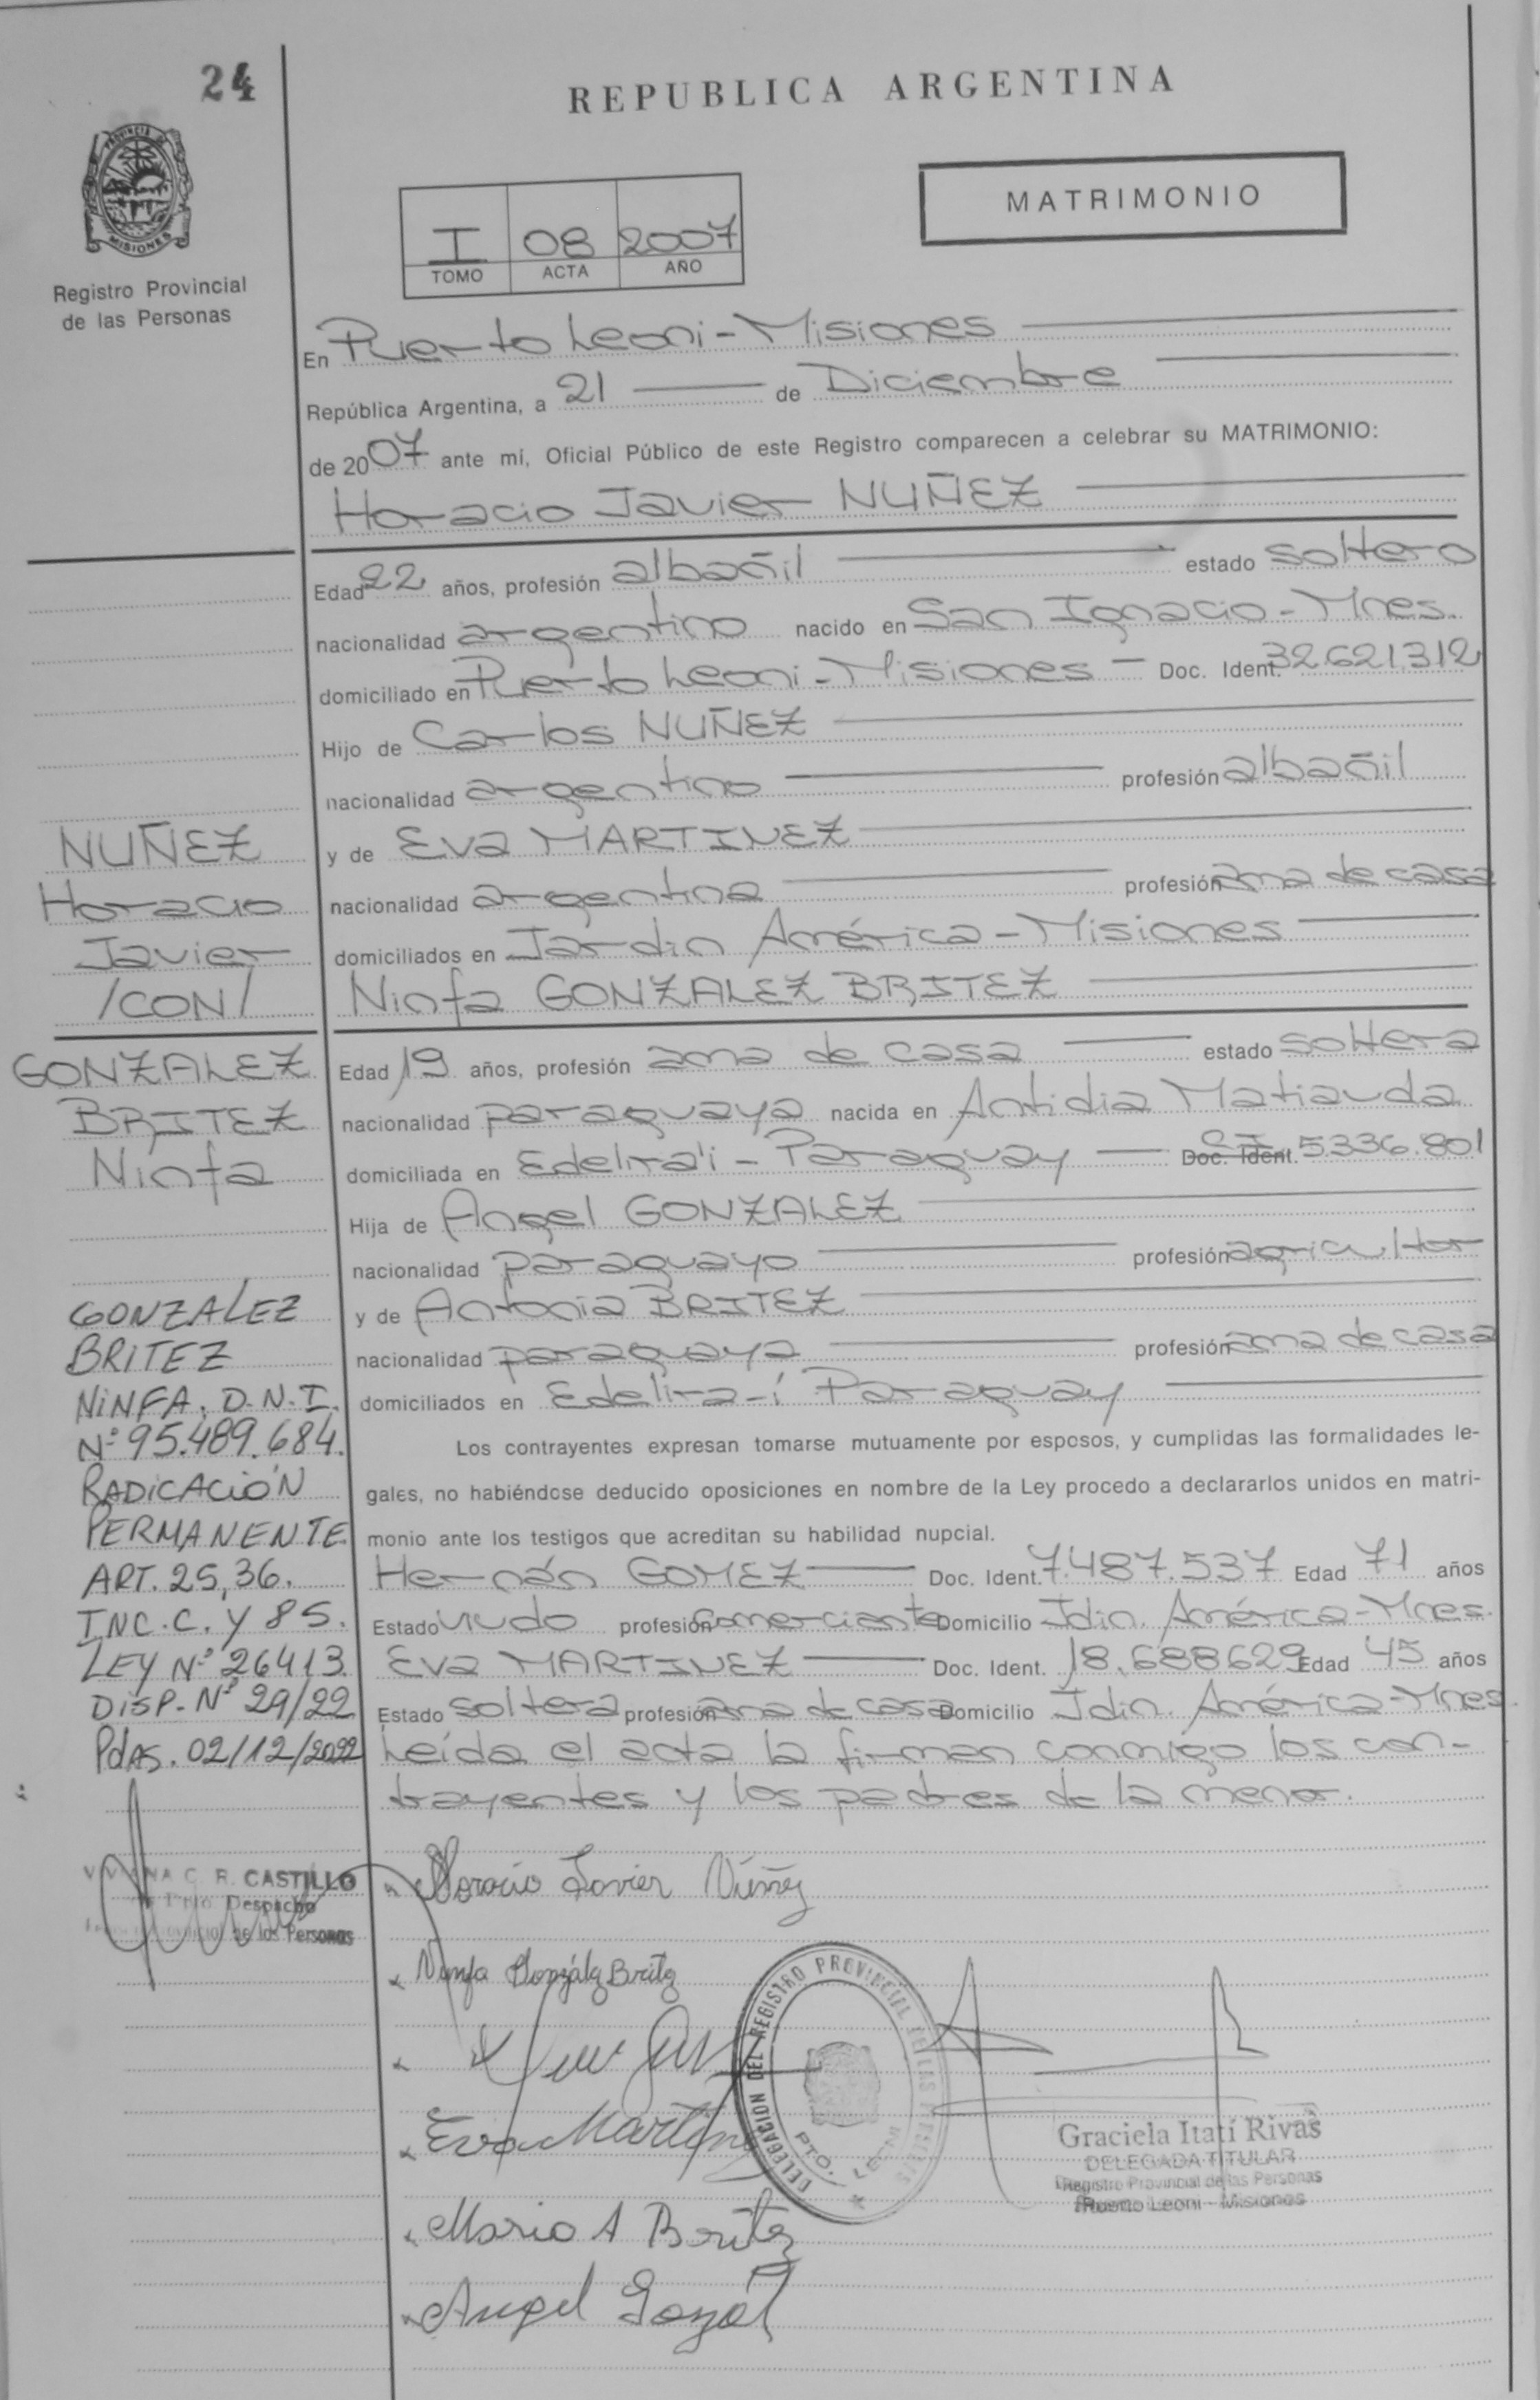 24
REPUBLICA ARGENTINA
PROVINCIA DE
MISIONES
Registro Provincial
de las Personas
MATRIMONIO
I 08 2007
TOMO ACTA AÑO
En Puerto Leoni - Misiones
República Argentina, a 21 de Diciembre
de 2007 ante mí, Oficial Público de este Registro comparecen a celebrar su MATRIMONIO:
Horacio Javier NUÑEZ
Edad 22 años, profesión albañil estado soltero
nacionalidad argentino nacido en San Ignacio - Mnes.
domiciliado en Puerto Leoni - Misiones - Doc. Ident. 32.621.312
Hijo de Carlos NUÑEZ
nacionalidad argentino profesión albañil
y de Eva MARTINEZ
nacionalidad argentina profesión ama de casa
domiciliados en Jardín América - Misiones
Ninfa GONZALEZ BRITEZ
NUÑEZ
Horacio
Javier
/CON/
GONZALEZ
BRITEZ
Ninfa
Edad 19 años, profesión ama de casa estado soltera
nacionalidad paraguaya nacida en Antidia Matiauda
domiciliada en Edelira'i - Paraguay — Doc. Ident. C.I. 5.336.801
Hija de Angel GONZALEZ
nacionalidad paraguayo profesión agricultor
y de Antonia BRITEZ
nacionalidad paraguaya profesión ama de casa
domiciliados en Edelira-í Paraguay
Los contrayentes expresan tomarse mutuamente por esposos, y cumplidas las formalidades le-
gales, no habiéndose deducido oposiciones en nombre de la Ley procedo a declararlos unidos en matri-
monio ante los testigos que acreditan su habilidad nupcial.
Hernán GOMEZ Doc. Ident. 7.487.537 Edad 71 años
Estado viudo profesión comerciante Domicilio Jdin. América - Mnes.
Eva MARTINEZ Doc. Ident. 18.688629 Edad 45 años
Estado soltera profesión ama de casa Domicilio Jdin. América - Mnes
Leída el acta la firman conmigo los con-
trayentes y los padres de la menor.
GONZALEZ
BRITEZ
NINFA. D.N.I.
Nº 95.489.684.
RADICACIÓN
PERMANENTE
ART. 25, 36.
INC. C. Y 85.
LEY Nº 26413.
DISP. Nº 29/22
Pdas. 02/12/2022
VIVIANA C. R. CASTILLO
Despacho
Provincial de las Personas
Horacio Javier Núñez
Ninfa González Britez
Eva Martinez
Mario A Britez
Angel Gonzál
DELEGACION DEL REGISTRO PROVINCIAL DE LAS PERSONAS
PTO. LEONI
Graciela Itatí Rivas
DELEGADA TITULAR
Registro Provincial de las Personas
Puerto Leoni - Misiones